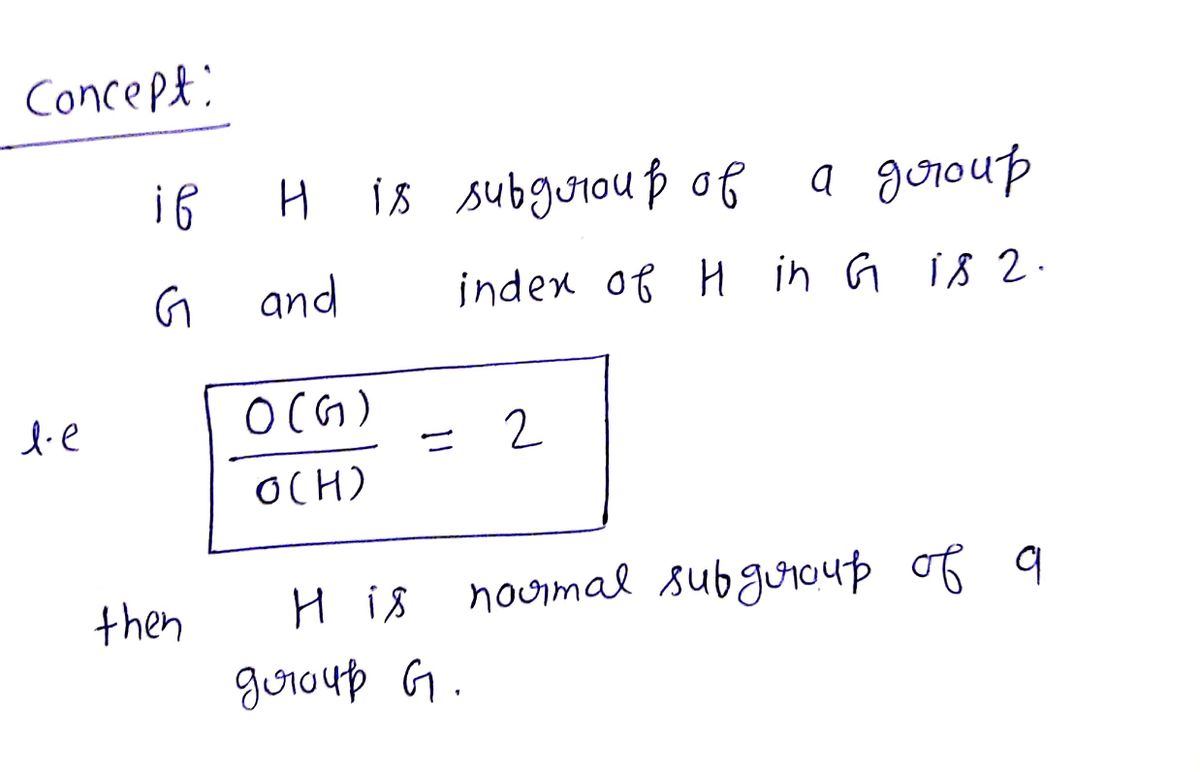 Concept:
if H is subgroup of a group
G and index of H in G is 2.
i.e O(G)/O(H) = 2
then H is normal subgroup of a
group G.